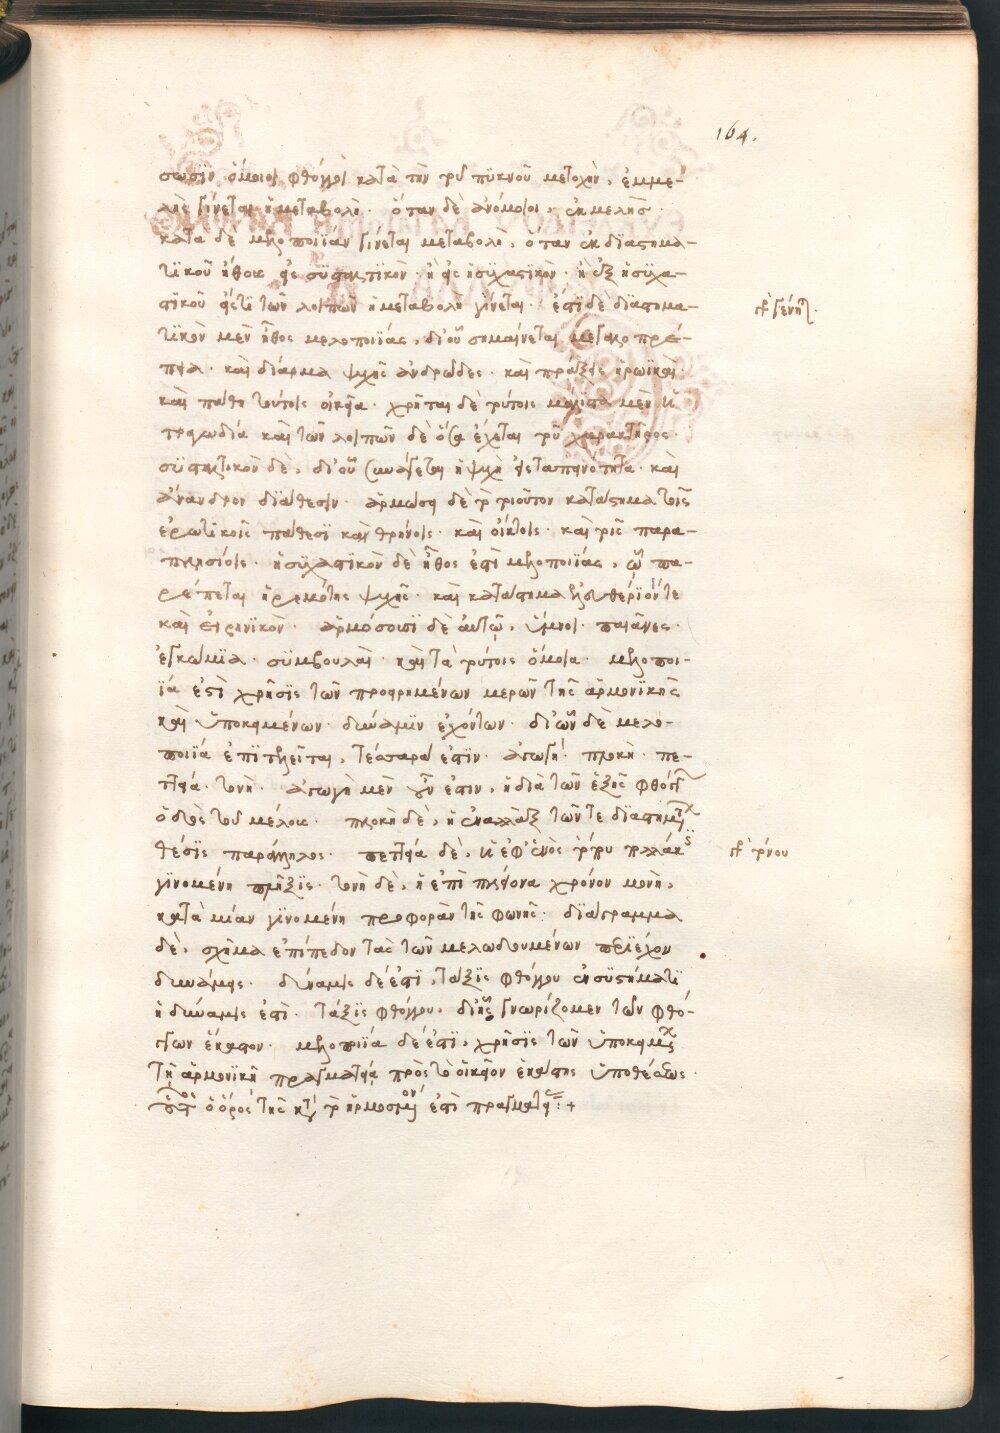 164.
σωσϊν ὅμοιοι φθόγγοι κατὰ τὴν τοῦ πυκνοῦ μετοχὴν, ἐμμε-
λὴς γίνεται ἡ μεταβολὴ· ὅταν δὲ ἀνόμοιοι, ἐκμελής·
κατὰ δὲ μελοποιΐαν γίνεται μεταβολὴ, ὅταν ἐκ διαστημα-
τικοῦ ἤθους εἰς συσταλτικὸν· ἢ εἰς ἡσυχαστικὸν· ἢ ἐξ ἡσυχα-
στικοῦ εἴς τι τῶν λοιπῶν ἡ μεταβολὴ γίνεται· ἐστὶ δὲ διαστημα-
τικὸν μὲν ἦθος μελοποιΐας, δι' οὗ σημαίνεται μεγαλοπρέ-
πεια· καὶ δίαρμα ψυχῆς ἀνδρῶδες· καὶ πράξεις ἡρωϊκαὶ·
καὶ πάθη τούτοις οἰκεῖα· χρῆται δὲ τούτοις μάλιστα μὲν ἡ
τραγωδία καὶ τῶν λοιπῶν δὲ ὅσα ἔχεται τοῦ χαρακτῆρος·
συσταλτικὸν δὲ, δι' οὗ συνάγεται ἡ ψυχὴ εἰς ταπεινότητα· καὶ
ἄνανδρον διάθεσιν· ἁρμόσει δὲ τὸ τοιοῦτον κατάστημα τοῖς
ἐρωτικοῖς πάθεσι καὶ θρήνοις· καὶ οἴκτοις· καὶ τοῖς παρα-
πλησίοις· ἡσυχαστικὸν δὲ ἦθος ἐστὶ μελοποιΐας, ᾧ πα-
ρέπεται ἠρεμότης ψυχῆς· καὶ κατάστημα ἐλευθέριόν τε
καὶ εἰρηνικὸν· ἁρμόσουσι δὲ αὐτῷ, ὕμνοι· παιᾶνες·
ἐγκώμια· συμβουλαὶ· καὶ τὰ τούτοις ὅμοια· μελοποι-
ΐα ἐστὶ χρῆσις τῶν προειρημένων μερῶν τῆς ἁρμονικῆς
καὶ ὑποκειμένων· δύναμιν ἐχόντων· δι' ὧν δὲ μελο-
ποιΐα ἐπιτελεῖται, τέσσαρα ἐστιν· ἀγωγή· πλοκὴ· πε-
τεία· τονὴ· ἀγωγὴ μὲν οὖν ἐστιν, ἡ διὰ τῶν ἑξῆς φθόγγων
ὁδὸς τοῦ μέλους· πλοκὴ δὲ, ἡ ἐναλλὰξ τῶν τε διαστημάτων
θέσις παράλληλος· πεττεία δὲ, ἡ ἐφ' ἑνὸς τόνου πολλάκις
γινομένη πλῆξις· τονὴ δὲ, ἡ ἐπὶ πλείονα χρόνον μονὴ,
κατὰ μίαν γινομένη προφορὰν τῆς φωνῆς· διάγραμμα
δὲ, σχῆμα ἐπίπεδον τὰς τῶν μελωδουμένων περιέχον
δυνάμεις· δύναμις δέ ἐστι, τάξις φθόγγου ἐν συστήματι
ἢ δύναμις ἐστι· τάξις φθόγγου, δι' ἧς γνωρίζομεν τῶν φθό-
γγων ἕκαστον· μελοποιΐα δέ ἐστι, χρῆσις τῶν ὑποκειμένων
τῇ ἁρμονικῇ πραγματεία πρὸς τὸ οἰκεῖον ἑκάστης ὑποθέσεως·
οὗτος ὁ ὅρος τῆς κατὰ τὸ ἡρμοσμένον ἐστὶ πραγματείας:+
γρ γένη
γρ τόνου